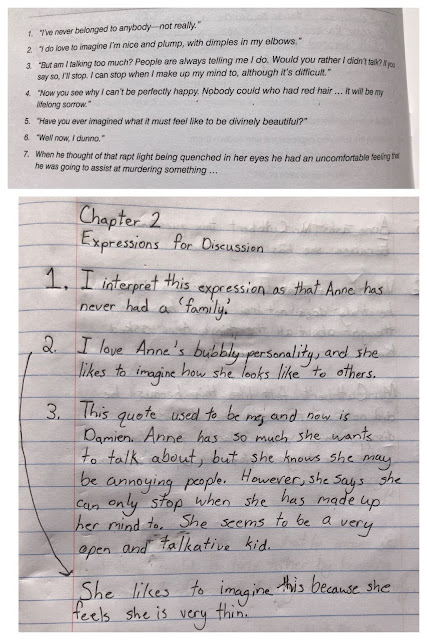 1. "I've never belonged to anybody—not really."
2. "I do love to imagine I'm nice and plump, with dimples in my elbows."
3. "But am I talking too much? People are always telling me I do. Would you rather I didn't talk? If you
say so, I'll stop. I can stop when I make up my mind to, although it's difficult."
4. "Now you see why I can't be perfectly happy. Nobody could who had red hair ... It will be my
lifelong sorrow."
5. "Have you ever imagined what it must feel like to be divinely beautiful?"
6. "Well now, I dunno."
7. When he thought of that rapt light being quenched in her eyes he had an uncomfortable feeling that
he was going to assist at murdering something ...
Chapter 2
Expressions for Discussion
1. I interpret this expression as that Anne has
never had a 'family'.
2. I love Anne's bubbly personality, and she
likes to imagine how she looks like to others.
3. This quote used to be me, and now is
Damien. Anne has so much she wants
to talk about, but she knows she may
be annoying people. However, she says she
can only stop when she has made up
her mind to. She seems to be a very
open and talkative kid.
She likes to imagine this because she
feels she is very thin.